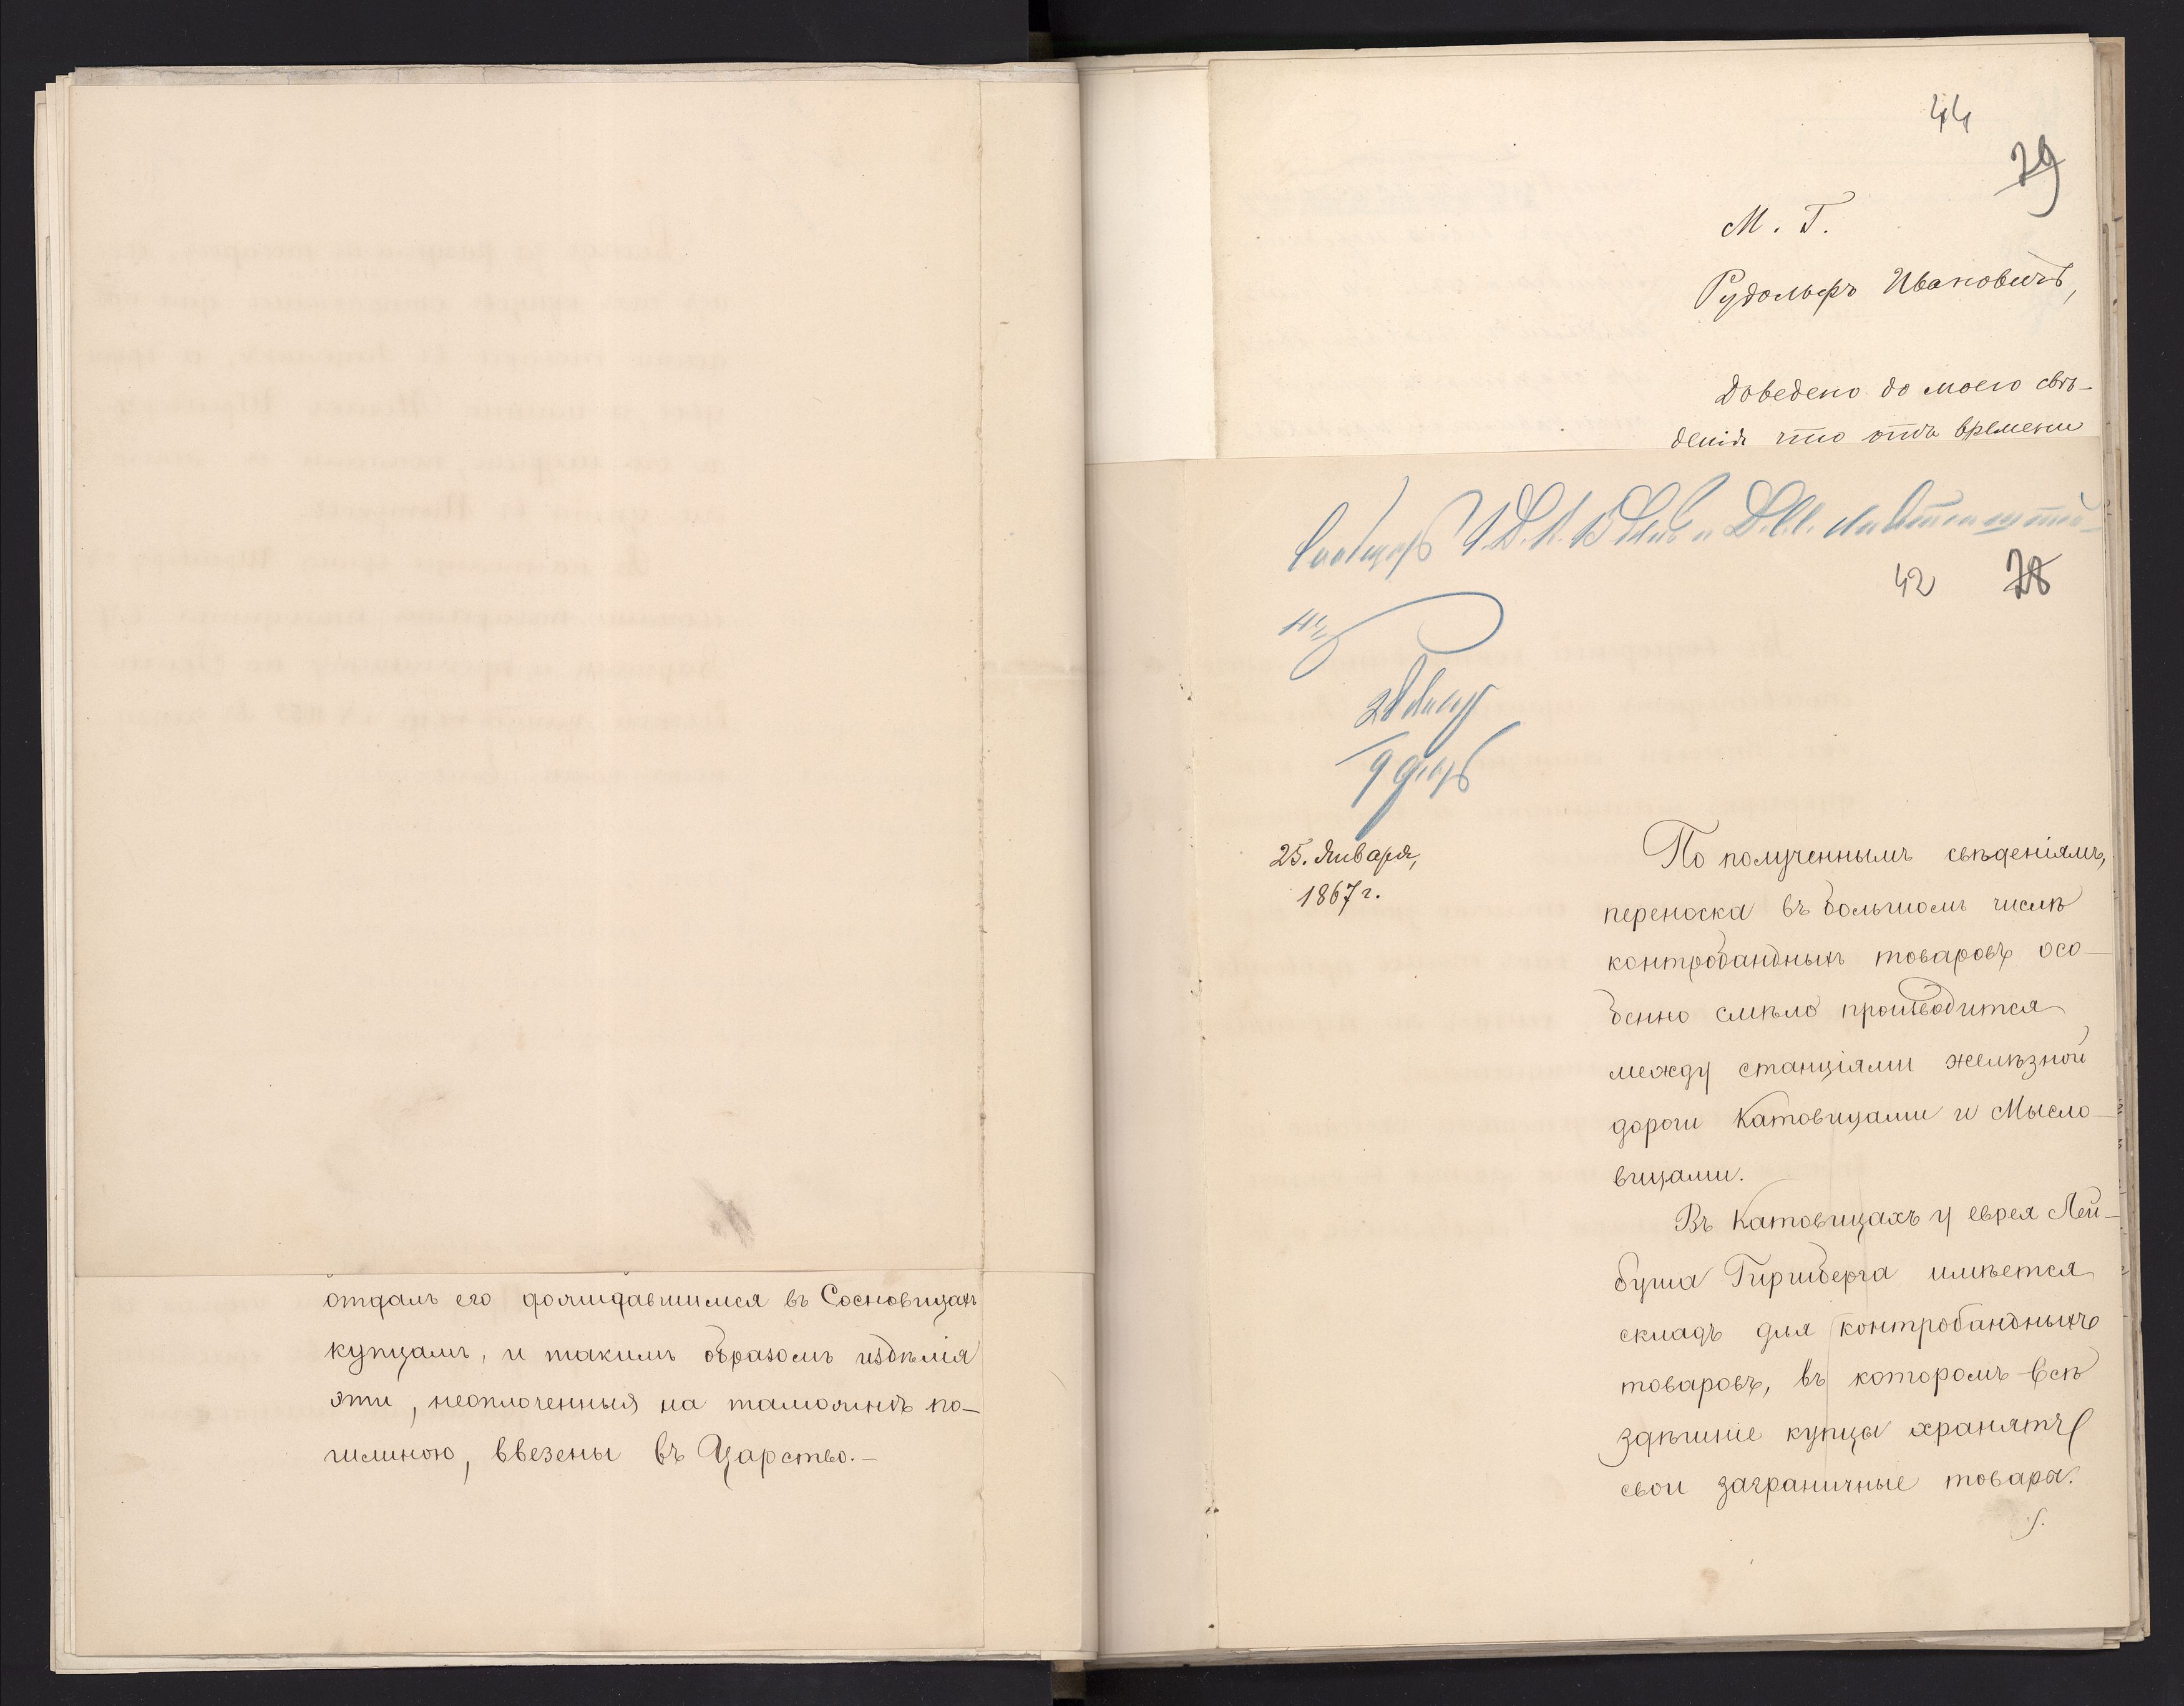 отдалъ его дожидавшимся въ Сосновицахъ
купцамъ, и такимъ образомъ издѣлія
эти, неоплоченныя на таможнѣ по-
шлиною, ввезены въ Царство.—
44
79
М. Г.
Рудольфъ Ивановичъ,
Доведено до моего свѣ-
денія что отъ времени
42 78
25. Января,
1867 г.
По полученнымъ свѣденіямъ,
переноска въ большомъ числѣ
контробандныхъ товаровъ осо-
бенно смѣло производится
между станціями желѣзной
дороги Катовицами и Мысло-
вицами.
Въ Катовицахъ у еврея Лей-
буша Гиршберга имѣется
складъ для контробандныхъ
товаровъ, въ которомъ всѣ
здѣшніе купцы хранятъ
свои заграничные товары.